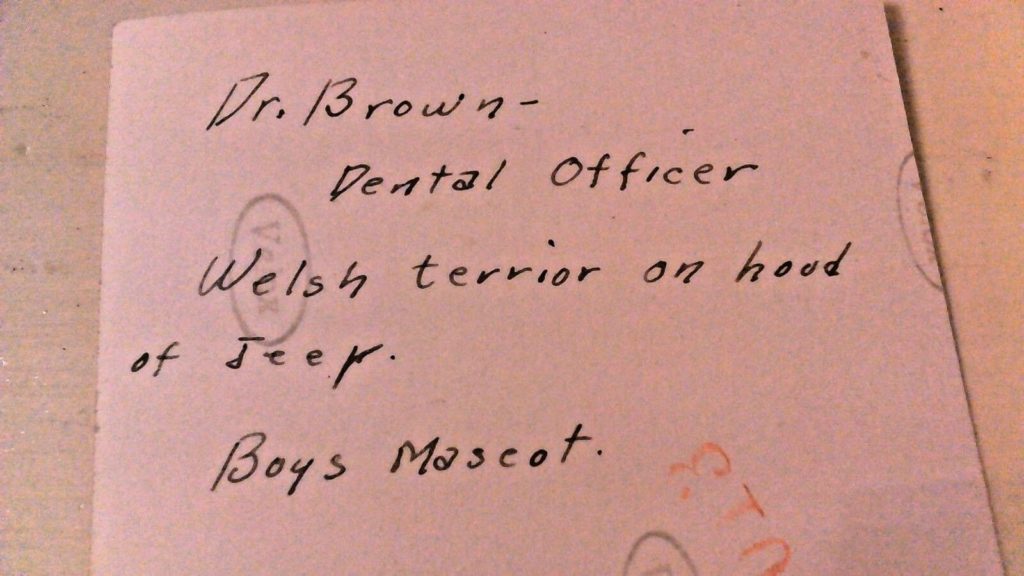 Dr. Brown-
Dental Officer
Welsh terrior on hood
of Jeep.
Boys Mascot.